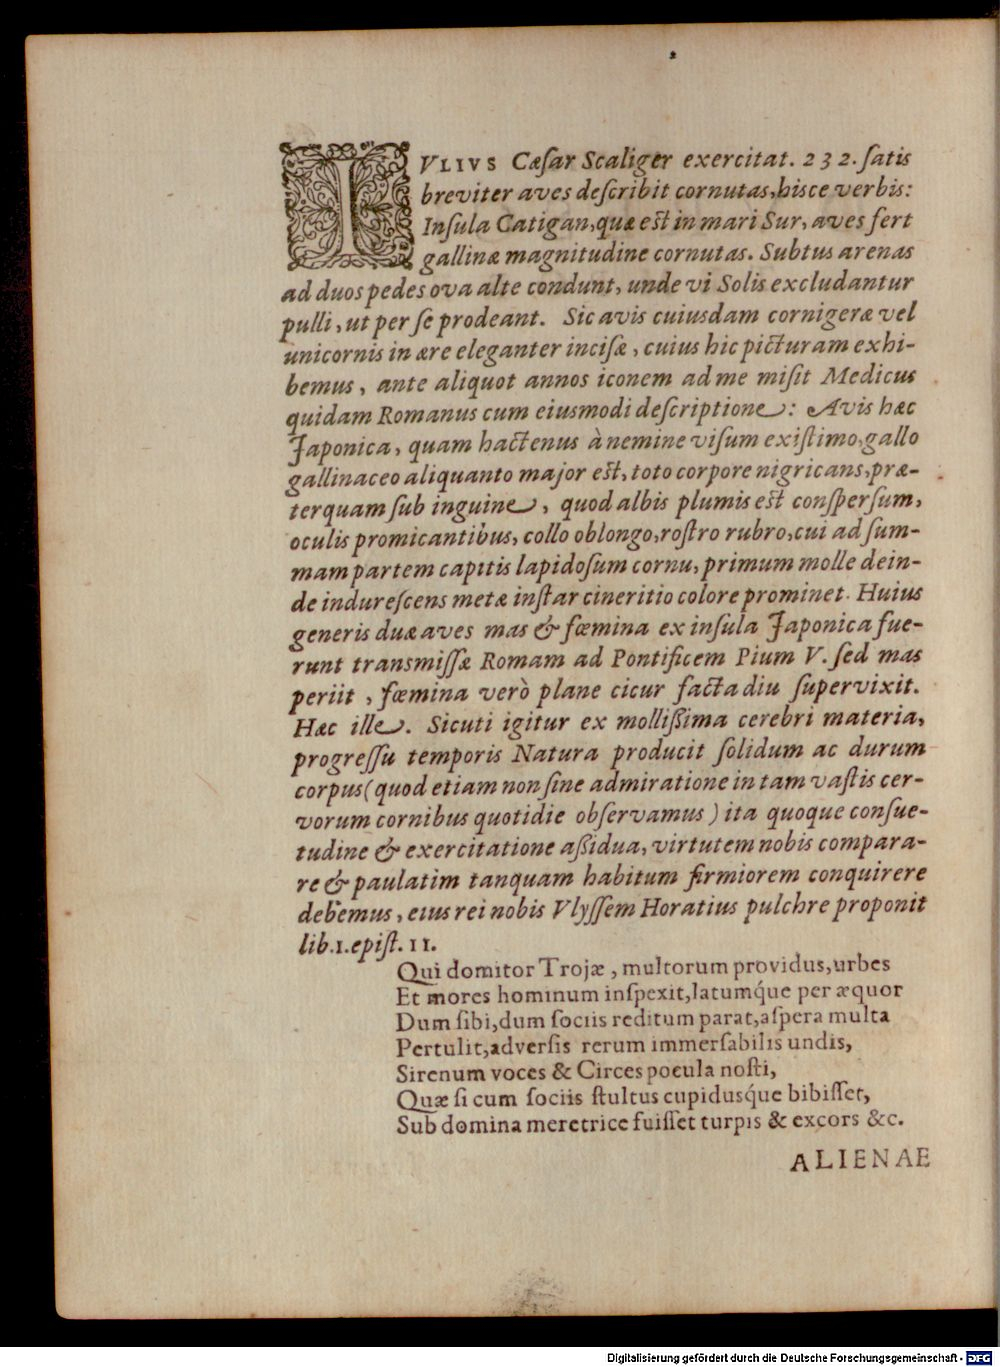 IVLIVS Cæſar Scaliger exercitat. 232. ſatis
breviter aves deſcribit cornutas, hisce verbis:
Inſula Catigan, quæ est in mari Sur, aves fert
gallinæ magnitudine cornutas. Subtus arenas
ad duos pedes ova alte condunt, unde vi Solis excludantur
pulli, ut per ſe prodeant. Sic avis cuiusdam cornigeræ vel
unicornis in ære eleganter inciſæ, cuius hic picturam exhi-
bemus, ante aliquot annos iconem ad me miſit Medicus
quidam Romanus cum eiusmodi deſcriptione: Avis hæc
Japonica, quam hactenus à nemine viſum exiſtimo, gallo
gallinaceo aliquanto major est, toto corpore nigricans, præ-
terquam ſub inguine, quod albis plumis est conſperſum,
oculis promicantibus, collo oblongo, roſtro rubro, cui ad ſum-
mam partem capitis lapidoſum cornu, primum molle dein-
de indureſcens metæ inſtar cineritio colore prominet. Huius
generis duæ aves mas & fœmina ex inſula Japonica fue-
runt transmiſſæ Romam ad Pontificem Pium V. ſed mas
periit, fœmina verò plane cicur facta diu ſupervixit.
Hæc ille. Sicuti igitur ex molliſsima cerebri materia,
progreſſu temporis Natura producit ſolidum ac durum
corpus (quod etiam non ſine admiratione in tam vaſtis cer-
vorum cornibus quotidie obſervamus) ita quoque conſue-
tudine & exercitatione aſsidua, virtutem nobis compara-
re & paulatim tanquam habitum firmiorem conquirere
debemus, eius rei nobis Vlyſſem Horatius pulchre proponit
lib. 1. epiſt. 11.
Qui domitor Trojæ, multorum providus, urbes
Et mores hominum inſpexit, latumq́ue per æquor
Dum ſibi, dum ſociis reditum parat, aſpera multa
Pertulit, adverſis rerum immerſabilis undis,
Sirenum voces & Circes pocula noſti,
Quæ ſi cum ſociis ſtultus cupidusq́ue bibiſſet,
Sub domina meretrice fuiſſet turpis & excors &c.
ALIENAE
Digitalisierung gefördert durch die Deutsche Forschungsgemeinschaft - DFG